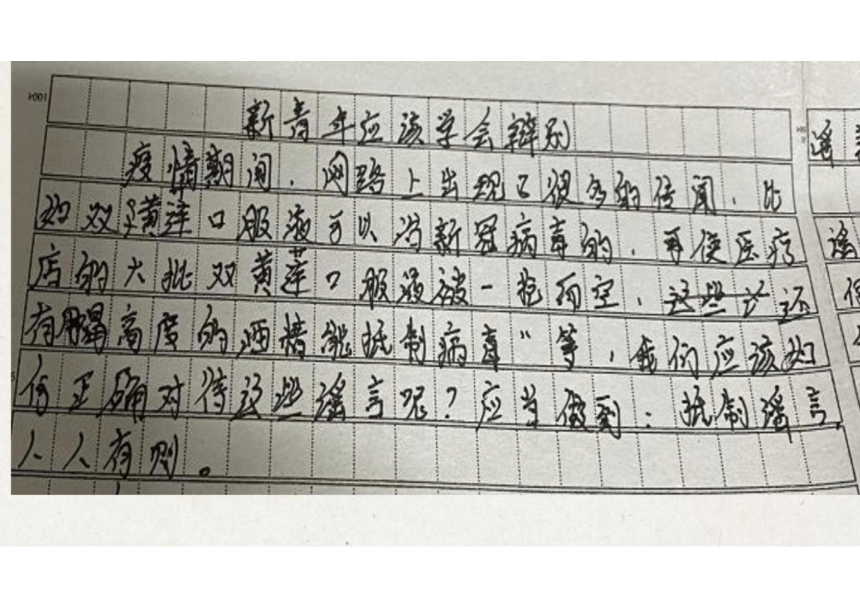 新青年应该学会辩别
疫情期间，网路上出现了很多的传闻，比
如双黄莲口服液可以治新冠病毒的，再使医疗
店的大批双黄莲口服液被一抢而空，还
有喝高度的酒精能抵制病毒"等，我们应该如
何正确对待这些谣言呢？应当做到：抵制谣言，
人人有则。